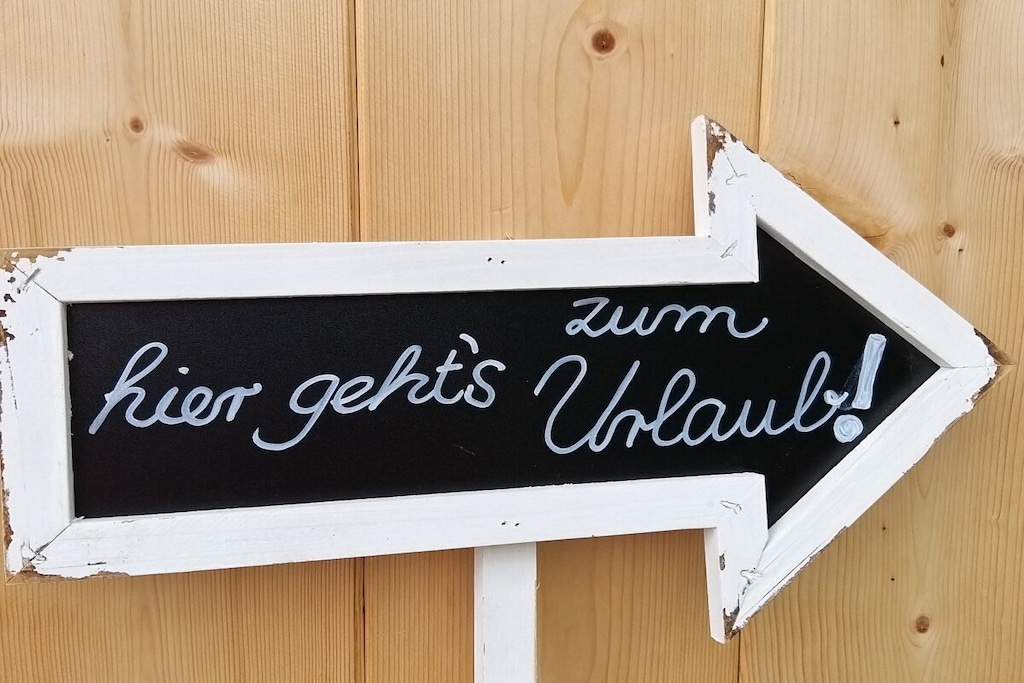 hier geht's zum
Urlaub!